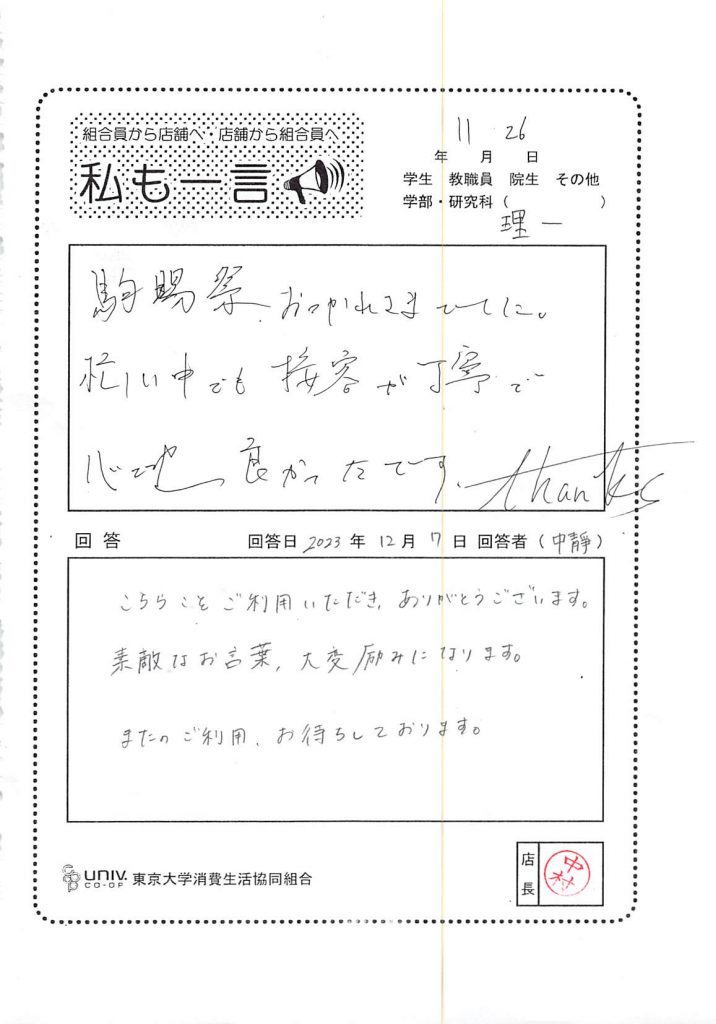 組合員から店舗へ・店舗から組合員へ
私も一言
11 26
年 月 日
学生 教職員 院生 その他
学部・研究科( )
理一
駒場祭、おつかれさまでした。
忙しい中でも接客が丁寧で
心地良かったです。thanks
回答 回答日 2023年12月7日 回答者(中靜)
こちらこそご利用いただき、ありがとうございます。
素敵なお言葉、大変励みになります。
またのご利用、お待ちしております。
UNIV. CO-OP 東京大学消費生活協同組合
店長 中村